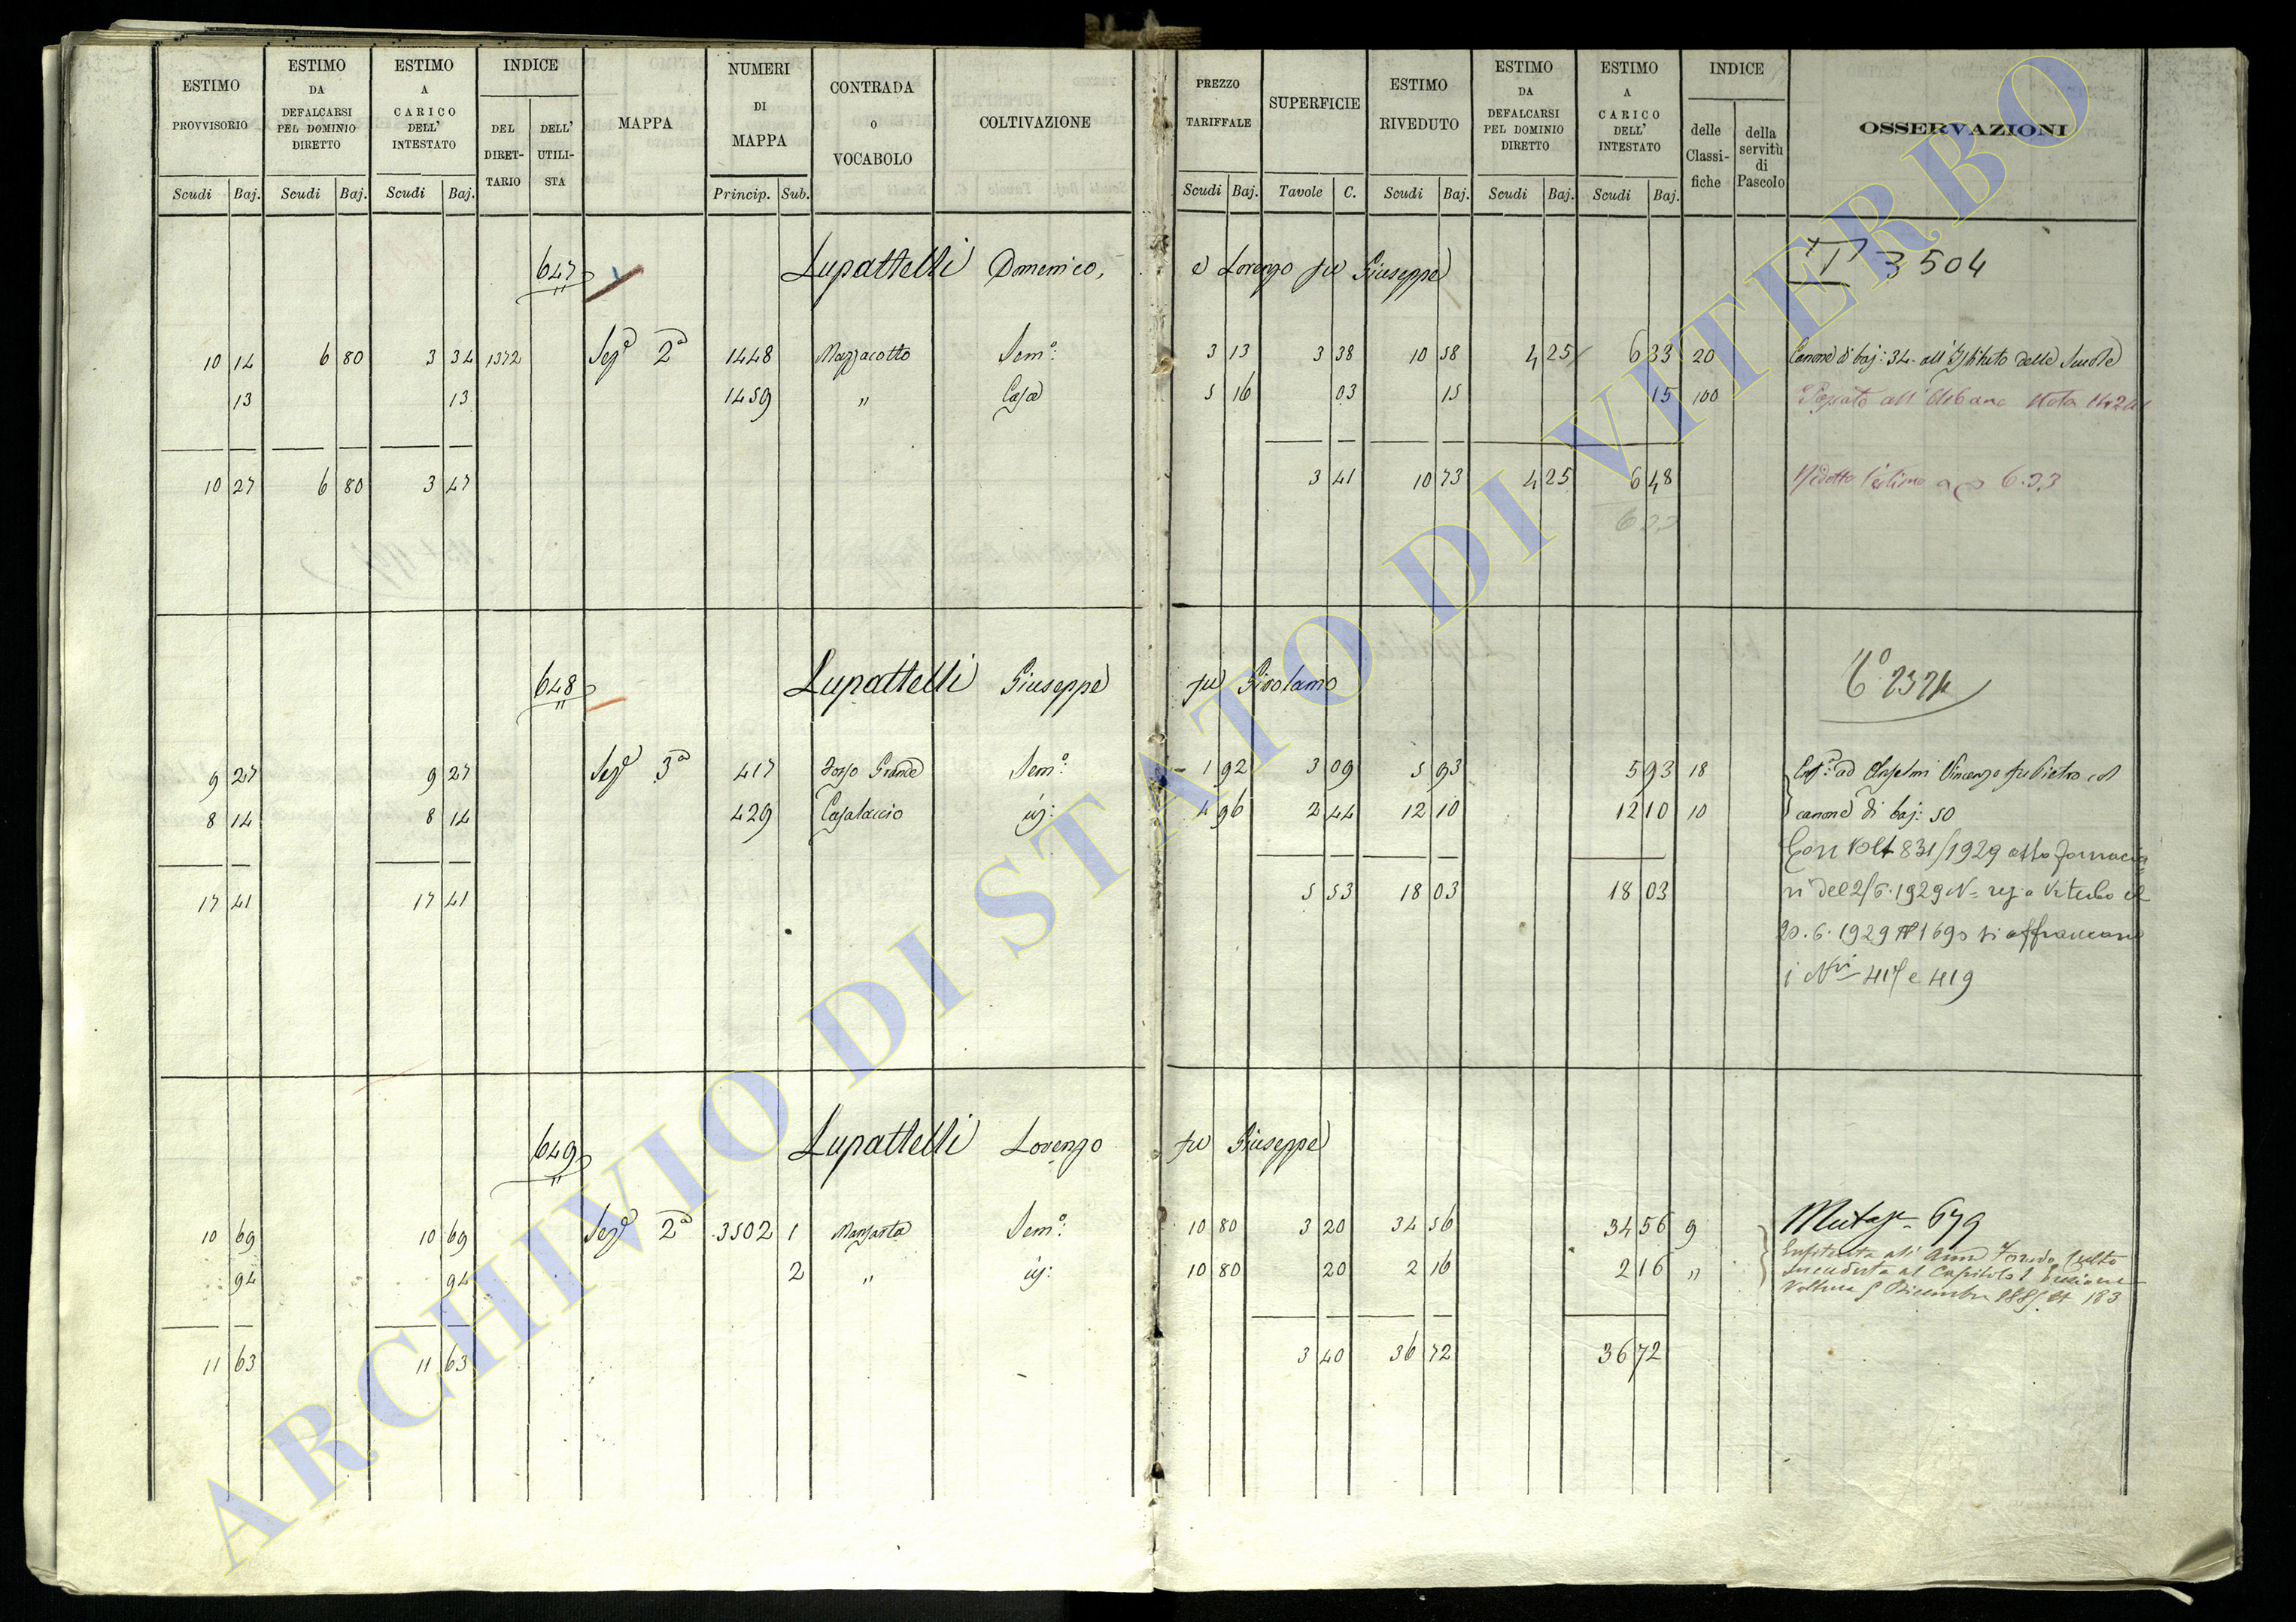 ESTIMO PROVVISORIO Scudi Baj.
ESTIMO DA DEFALCARSI PEL DOMINIO DIRETTO Scudi Baj.
ESTIMO A CARICO DELL' INTESTATO Scudi Baj.
INDICE DEL DIRET-TARIO DELL' UTILI-STA
MAPPA
NUMERI DI MAPPA Princip. Sub.
CONTRADA O VOCABOLO
COLTIVAZIONE
PREZZO TARIFFALE Scudi Baj.
SUPERFICIE Tavole C.
ESTIMO RIVEDUTO Scudi Baj.
ESTIMO DA DEFALCARSI PEL DOMINIO DIRETTO Scudi Baj.
ESTIMO A CARICO DELL' INTESTATO Scudi Baj.
INDICE delle Classi-fiche della servitù di Pascolo
OSSERVAZIONI
647 Lupattelli Domenico, e Lorenzo fu Giuseppe 3504
10 14 6 80 3 34 1372 Sez.e 2a 1448 Mazzacotto Sem.o: 3 13 3 38 10 58 4 25 6 33 20 Canone di baj: 34 all'Istituto delle Scuole
13 13 1459 " Casa 5 16 03 15 15 100 all'Urbano
10 27 6 80 3 47 3 41 10 73 4 25 6 48 Ridotto l'estimo a 6.33
6 33
648 Lupattelli Giuseppe fu Girolamo
9 27 9 27 Sez.e 3a 417 Fosso Grande Sem.o: 1 92 3 09 5 93 5 93 18 ad Anselmi Vincenzo fu Pietro col
8 14 8 14 429 Casalaccio id: 4 96 2 44 12 10 12 10 10 canone di baj: 50
Con Volt 831/1929 atto Fornacia
17 41 17 41 5 53 18 03 18 03 ri del 2/6.1929 N= reg a Viterbo il
20.6.1929 N° 1690 si affrancano
i Nri 417 e 419
649 Lupattelli Lorenzo fu Giuseppe
10 69 10 69 Sez.e 2a 3502 1 Manganta Sem.o: 10 80 3 20 34 56 34 56 9 679
94 94 2 " id: 10 80 20 2 16 2 16 "
Voltura 5 Dicembre 183
11 63 11 63 3 40 36 72 36 72
ARCHIVIO DI STATO DI VITERBO